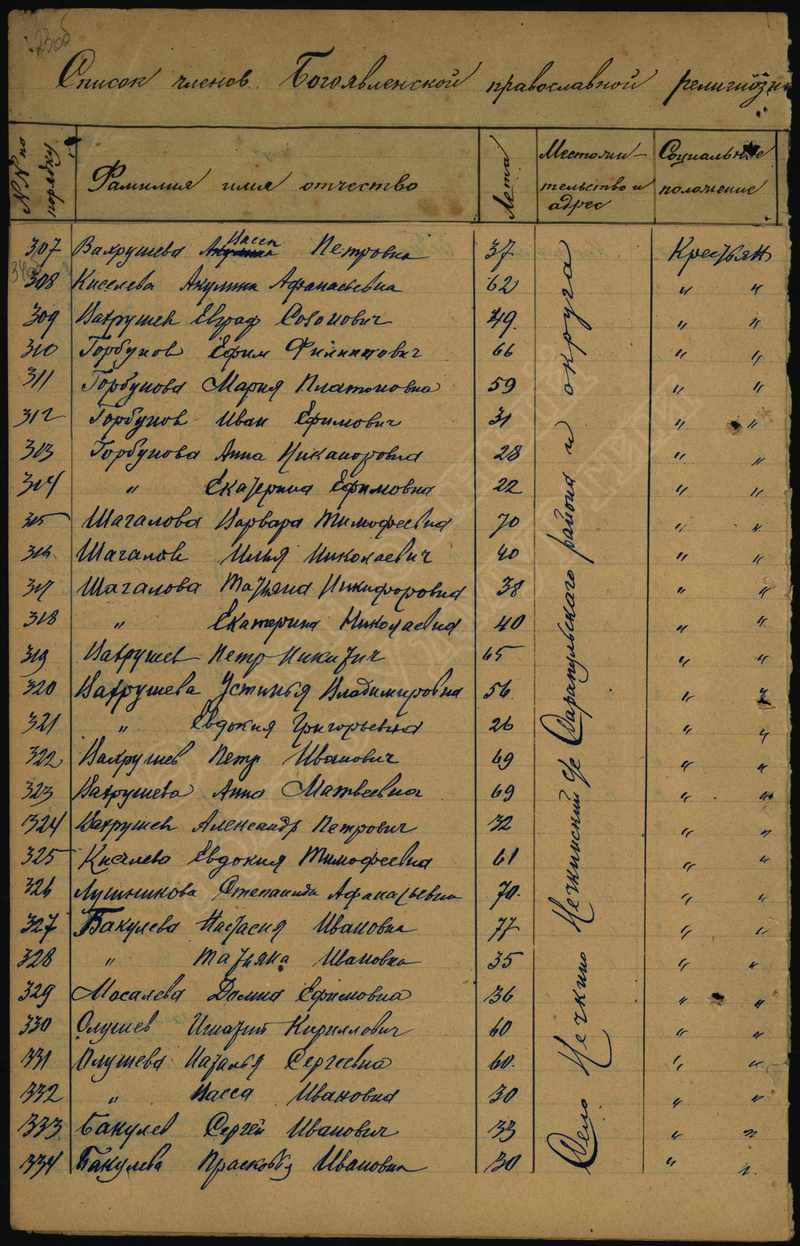 Список членов Богоявленской православной религиозн
NN по порядку
Фамилия имя отчество
Лета
Местожи-
тельство и
адрес
Социальное
положение
307 Вахрушева Васса Петровна 37 Крестьян
308 Киселева Акулина Афанасьевна 62 〃 〃
309 Вахрушев Евграф Созонович 49 〃 〃
310 Горбунов Ефим Филиппович 66 〃 〃
311 Горбунова Мария Платоновна 59 〃 〃
312 Горбунов Иван Ефимович 31 〃 〃
313 Горбунова Анна Никаноровна 28 〃 〃
314 〃 Екатерина Ефимовна 22 〃 〃
315 Шагалова Варвара Тимофеевна 70 〃 〃
316 Шагалов Илья Николаевич 40 〃 〃
317 Шагалова Татьяна Никифоровна 38 〃 〃
318 〃 Екатерина Николаевна 40 〃 〃
319 Вахрушев Петр Никитич 65 〃 〃
320 Вахрушева Устинья Владимировна 56 〃 〃
321 〃 Евдокия Григорьевна 26 〃 〃
322 Вахрушев Петр Иванович 69 〃 〃
323 Вахрушева Анна Матвеевна 69 〃 〃
324 Вахрушев Александр Петрович 32 〃 〃
325 Киселева Евдокия Тимофеевна 61 〃 〃
326 Лушникова Степанида Афанасьевна 70 〃 〃
327 Бакулева Настасия Ивановна 77 〃 〃
328 〃 Татьяна Ивановна 35 〃 〃
329 Мосалева Домна Ефимовна 36 〃 〃
330 Олушев Игнатий Кириллович 60 〃 〃
331 Олушева Наталья Сергеевна 60 〃 〃
332 〃 Васса Ивановна 30 〃 〃
333 Бакулев Сергей Иванович 33 〃 〃
334 Бакулева Прасковья Ивановна 30 〃 〃
Село Нечкино Нечкинский с/с Сарапульского района и округа